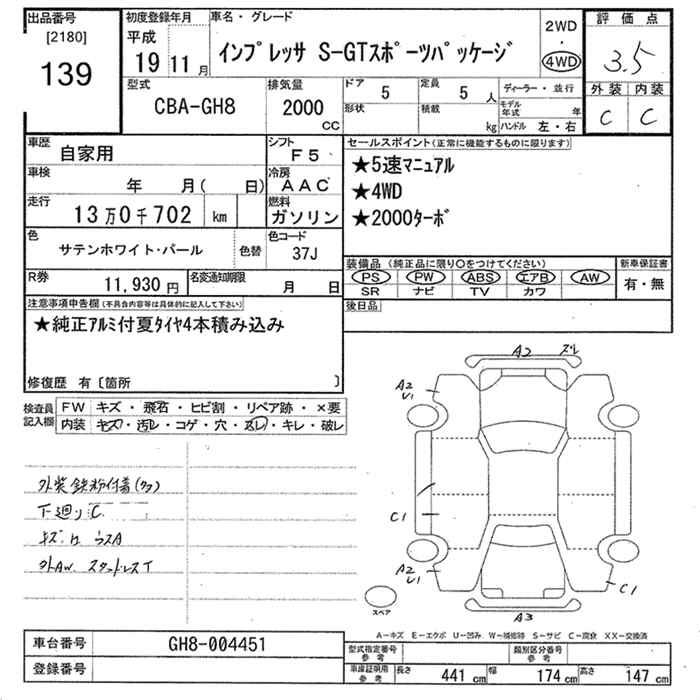 出品番号
[2180]
139
初度登録年月
平成
19 11 月
車名・グレード
インプレッサ S-GTスポーツパッケージ
2WD
・
4WD
評価点
3.5
外装 内装
C C
型式
CBA-GH8
排気量
2000
CC
ドア
5
定員
5 人
形状
積載
kg
ディーラー・並行
モデル年式 年
ハンドル 左・右
車歴
自家用
シフト
F5
車検
年 月( 日)
冷房
AAC
走行
13万0千702 km
燃料
ガソリン
色
サテンホワイト・パール
色替
色コード
37J
R券
11,930 円
名変通知期限
月 日
セールスポイント(正常に機能するものに限ります)
★5速マニュアル
★4WD
★2000ターボ
装備品(純正品に限り○をつけてください)
PS PW ABS エアB AW
SR ナビ TV カワ
新車保証書
有・無
後日品
注意事項申告欄(不具合内容等は具体的に記入して下さい)
★純正アルミ付夏タイヤ4本積み込み
修復歴 有〔箇所 〕
検査員記入欄
FW キズ・飛石・ヒビ割・リペア跡・×要
内装 キズ・汚レ・コゲ・穴・スレ・キレ・破レ
外装鉄粉付着(多)
下廻りC
キズ 凹 ウスA
外AW スタッドレスT
A2 ズレ
A2
U1
C1
A2
U1
C1
A3
スペア
A－キズ E－エクボ U－凹み W－補修跡 S－サビ C－腐食 XX－交換済
車台番号
GH8-004451
登録番号
型式指定番号
参考
類別区分番号
参考
車庫証明用
参考
長さ 441 cm 幅 174 cm 高さ 147 cm